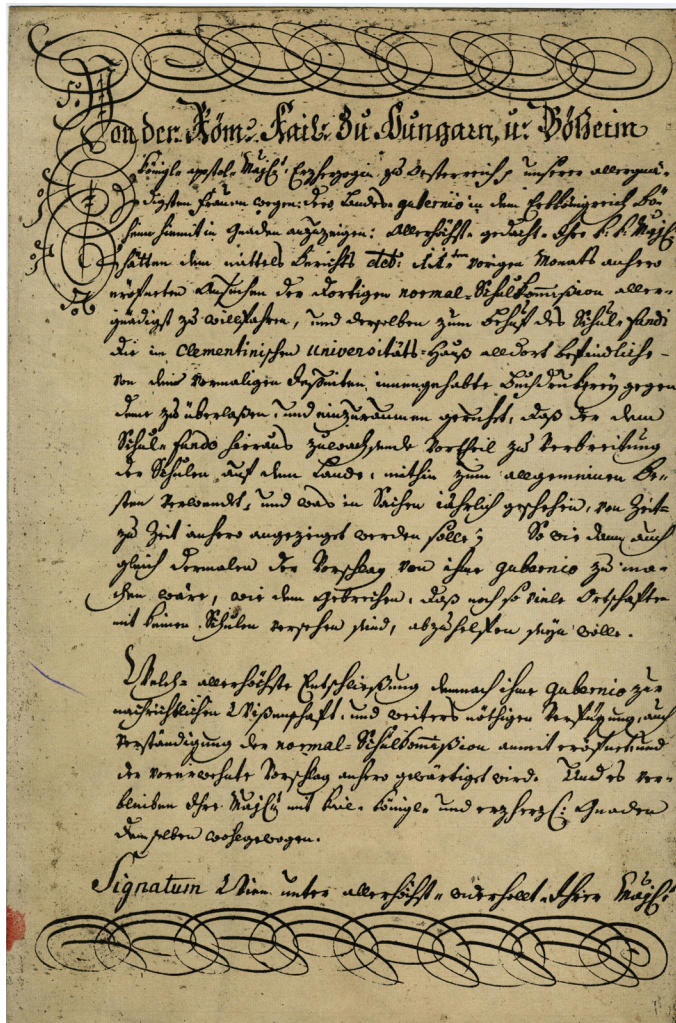 Von der Röm: Kaiß: zu Hungarn, u: Böheim
Königl: apost: Majtt: Erzherzogin zu Oesterreich, unserer allergnä-
digsten Frauen wegen: dero Landes-gubernio in dem Erbkönigreich Bö-
heim hiemit in Gnaden anzuzeigen: Allerhöchst-gedacht-Ihre k: k: Majtt:
hätten dem mittels Berichts vorigen Monats anhero
eröfneten Ansuchen der dortigen normal-Schulkommißion aller-
gnädigst zu willfahren, und derselben zum Behuf des Schul-fundi
die im clementinischen universitäts-Hauß alldort befindliche-
von denen vormaligen Jesuiten innengehabte Buchdruckerey gegen
deme zu überlaßen, und einzuraumen geruhet, daß der dem
Schul-fundo hieraus zuwachsende Vortheil zu Verbreitung
der Schulen auf dem Lande, mithin zum allgemeinen Be-
sten verwendet, und was in Sachen jährlich geschehen, von Zeit-
zu Zeit anhero angezeiget werden solle; So wie dann auch
gleich dermalen der Vorschlag von ihme gubernio zu ma-
chen wäre, wie dem Gebrechen, daß noch so viele Ortschaften
mit keinen Schulen versehen sind, abzuhelfen seyn wolle.
Welch-allerhöchste Entschließung demnach ihme gubernio zur
nachrichtlichen Wißenschaft, und weiters nöthigen Verfügung, auch
Verständigung der normal-Schulkommißion anmit eröfnet, und
der vorerwehnte Vorschlag anhero gewärtiget wird. Und es ver-
bleiben Ihre Majtt: mit kaiß: königl: und erzherzl: Gnaden
demselben wohlgewogen.
Signatum Wien unter allerhöchst-widerholt-Ihrer Majtt: